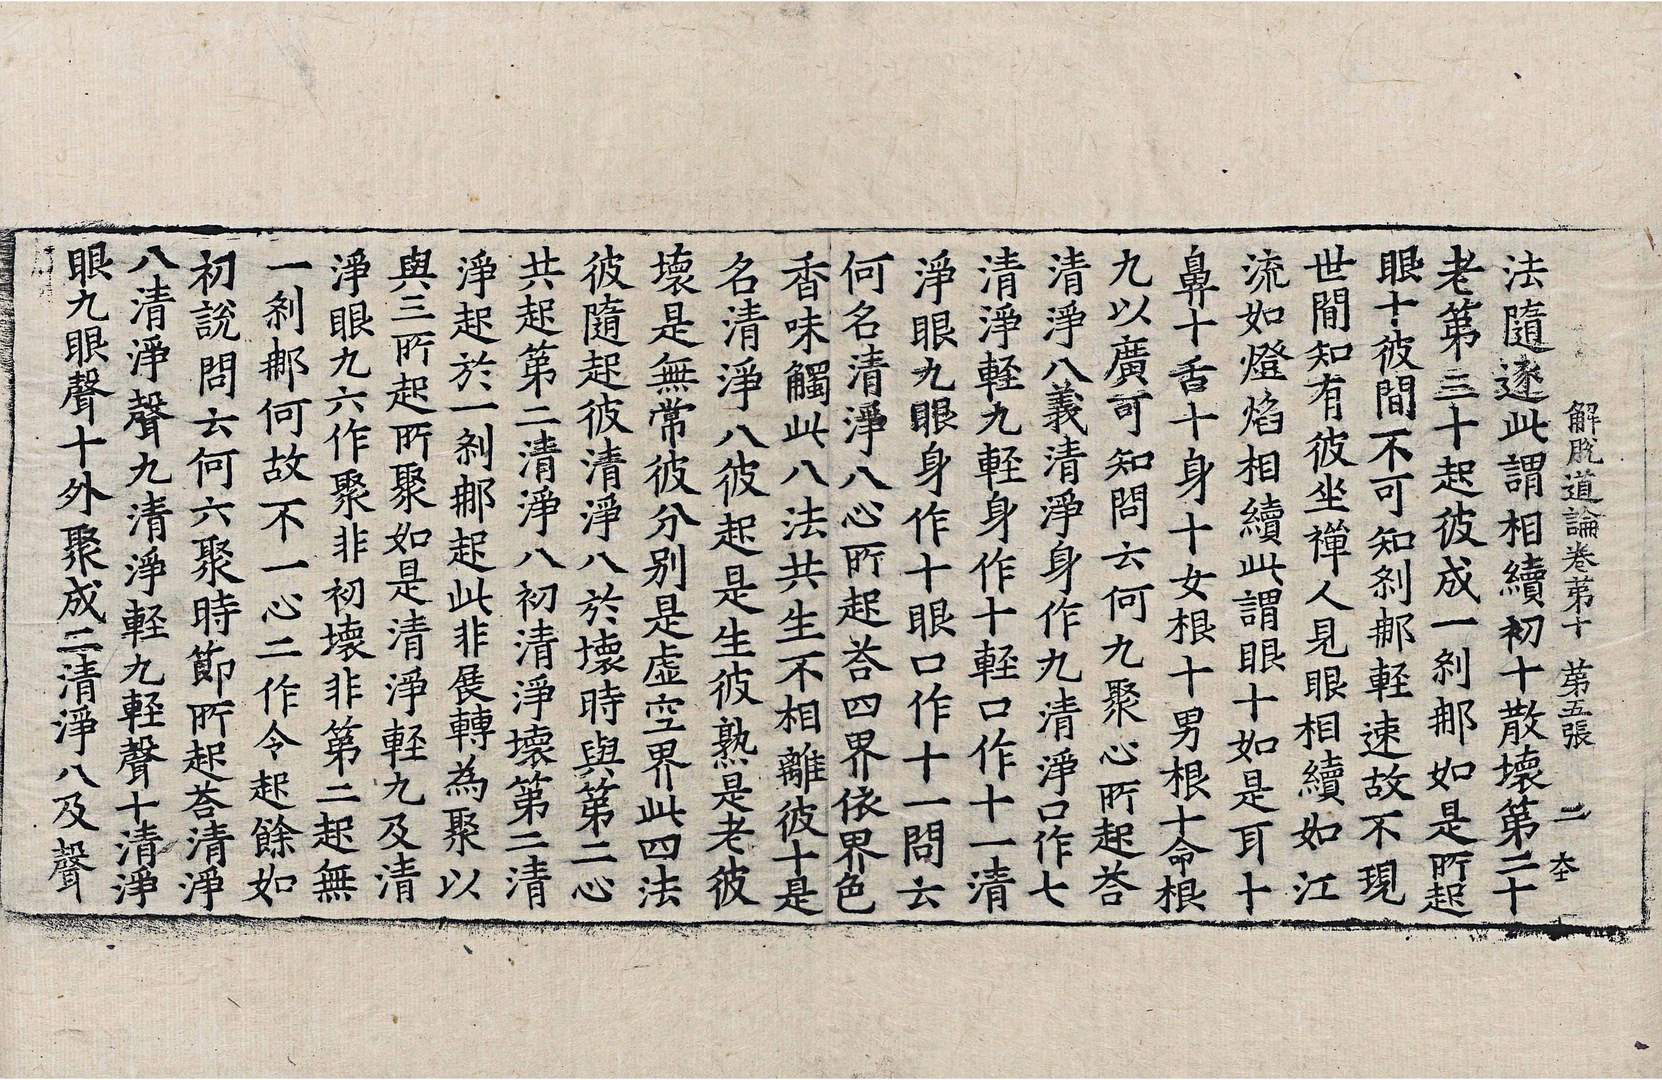 解脫道論卷第十 第五張 二
法隨逐此謂相續初十散壞第二十
老第三十起彼成一剎那如是所起
眼十彼間不可知剎那輕速故不現
世間知有彼坐禪人見眼相續如江
流如燈焰相續此謂眼十如是耳十
鼻十舌十身十女根十男根十命根
九以廣可知問云何九聚心所起荅
清淨八義清淨身作九清淨口作七
清淨輕九輕身作十輕口作十一清
淨眼九眼身作十眼口作十一問云
何名清淨八心所起荅四界依界色
香味觸此八法共生不相離彼十是
名清淨八彼起是生彼熟是老彼
壞是無常彼分別是虛空界此四法
彼隨起彼清淨八於壞時與第二心
共起第二清淨八初清淨壞第二清
淨起於一剎那起此非展轉為聚以
與三所起所聚如是清淨輕九及清
淨眼九六作聚非初壞非第二起無
一剎那何故不一心二作令起餘如
初說問云何六聚時節所起荅清淨
八清淨聲九清淨輕九輕聲十清淨
眼九眼聲十外聚成二清淨八及聲